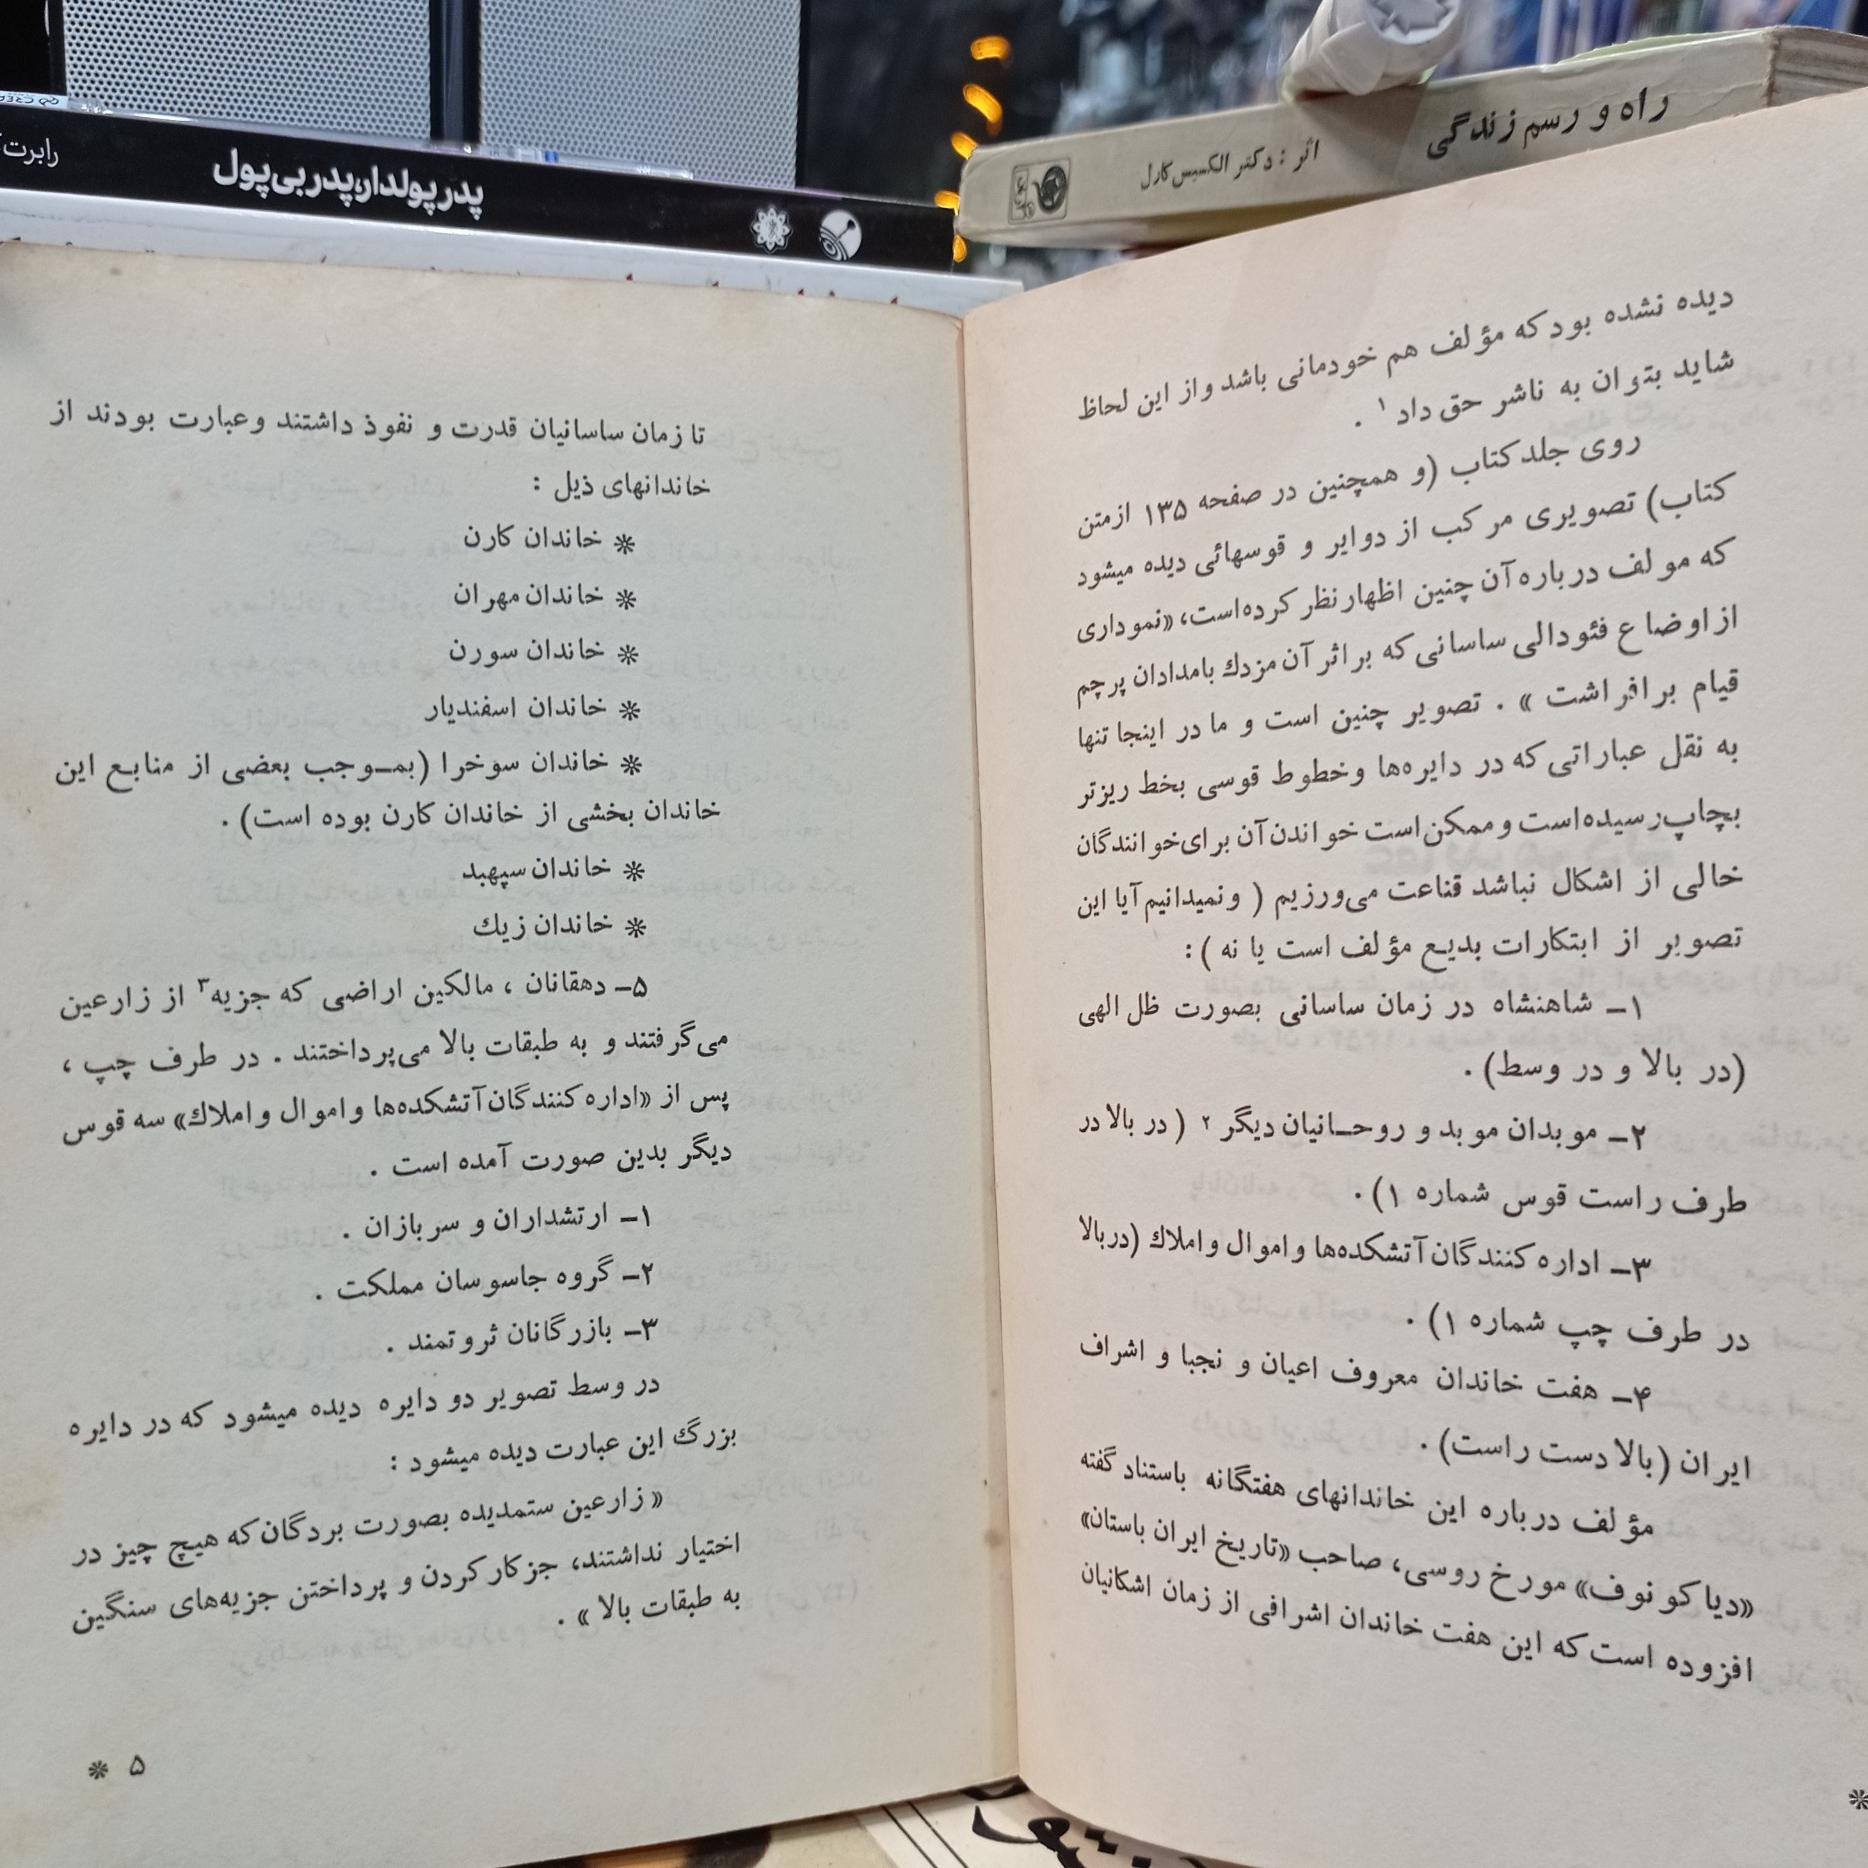 راه و رسم زندگی
اثر : دکتر الکسیس کارل
پدر پولدار، پدر بی‌پول
رابرت
دیده نشده بود که مؤلف هم خودمانی باشد و از این لحاظ
شاید بتوان به ناشر حق داد ۱ .
روی جلد کتاب (و همچنین در صفحه ۱۳۵ ازمتن
کتاب) تصویری مرکب از دوایر و قوسهائی دیده میشود
که مولف درباره آن چنین اظهار نظر کرده‌است، «نموداری
از اوضاع فئودالی ساسانی که بر اثر آن مزدك بامدادان پرچم
قیام برافراشت » . تصویر چنین است و ما در اینجا تنها
به نقل عباراتی که در دایره‌ها و خطوط قوسی بخط ریزتر
بچاپ‌رسیده‌است و ممکن است خواندن آن برای خوانندگان
خالی از اشکال نباشد قناعت می‌ورزیم ( و نمیدانیم آیا این
تصویر از ابتکارات بدیع مؤلف است یا نه ) :
۱ــ شاهنشاه در زمان ساسانی بصورت ظل الهی
(در بالا و در وسط) .
۲ــ موبدان موبد و روحـانیان دیگر ۲ ( در بالا در
طرف راست قوس شماره ۱) .
۳ــ اداره کنندگان آتشکده‌ها و اموال و املاك (در بالا
در طرف چپ شماره ۱) .
۴ــ هفت خاندان معروف اعیان و نجبا و اشراف
ایران (بالا دست راست) .
مؤلف درباره این خاندانهای هفتگانه باستناد گفته
«دیاکونوف» مورخ روسی، صاحب «تاریخ ایران باستان»
افزوده است که این هفت خاندان اشرافی از زمان اشکانیان
*
تا زمان ساسانیان قدرت و نفوذ داشتند و عبارت بودند از
خاندانهای ذیل :
* خاندان کارن
* خاندان مهران
* خاندان سورن
* خاندان اسفندیار
* خاندان سوخرا (بمـوجب بعضی از منابع این
خاندان بخشی از خاندان کارن بوده است) .
* خاندان سپهبد
* خاندان زیك
۵ــ دهقانان ، مالکین اراضی که جزیه ۳ از زارعین
می‌گرفتند و به طبقات بالا می‌پرداختند . در طرف چپ ،
پس از «اداره کنندگان آتشکده‌ها و اموال و املاك» سه قوس
دیگر بدین صورت آمده است .
۱ــ ارتشداران و سربازان .
۲ــ گروه جاسوسان مملکت .
۳ــ بازرگانان ثروتمند .
در وسط تصویر دو دایره دیده میشود که در دایره
بزرگ این عبارت دیده میشود :
« زارعین ستمدیده بصورت بردگان که هیچ چیز در
اختیار نداشتند، جز کار کردن و پرداختن جزیه‌های سنگین
به طبقات بالا » .
۵ *